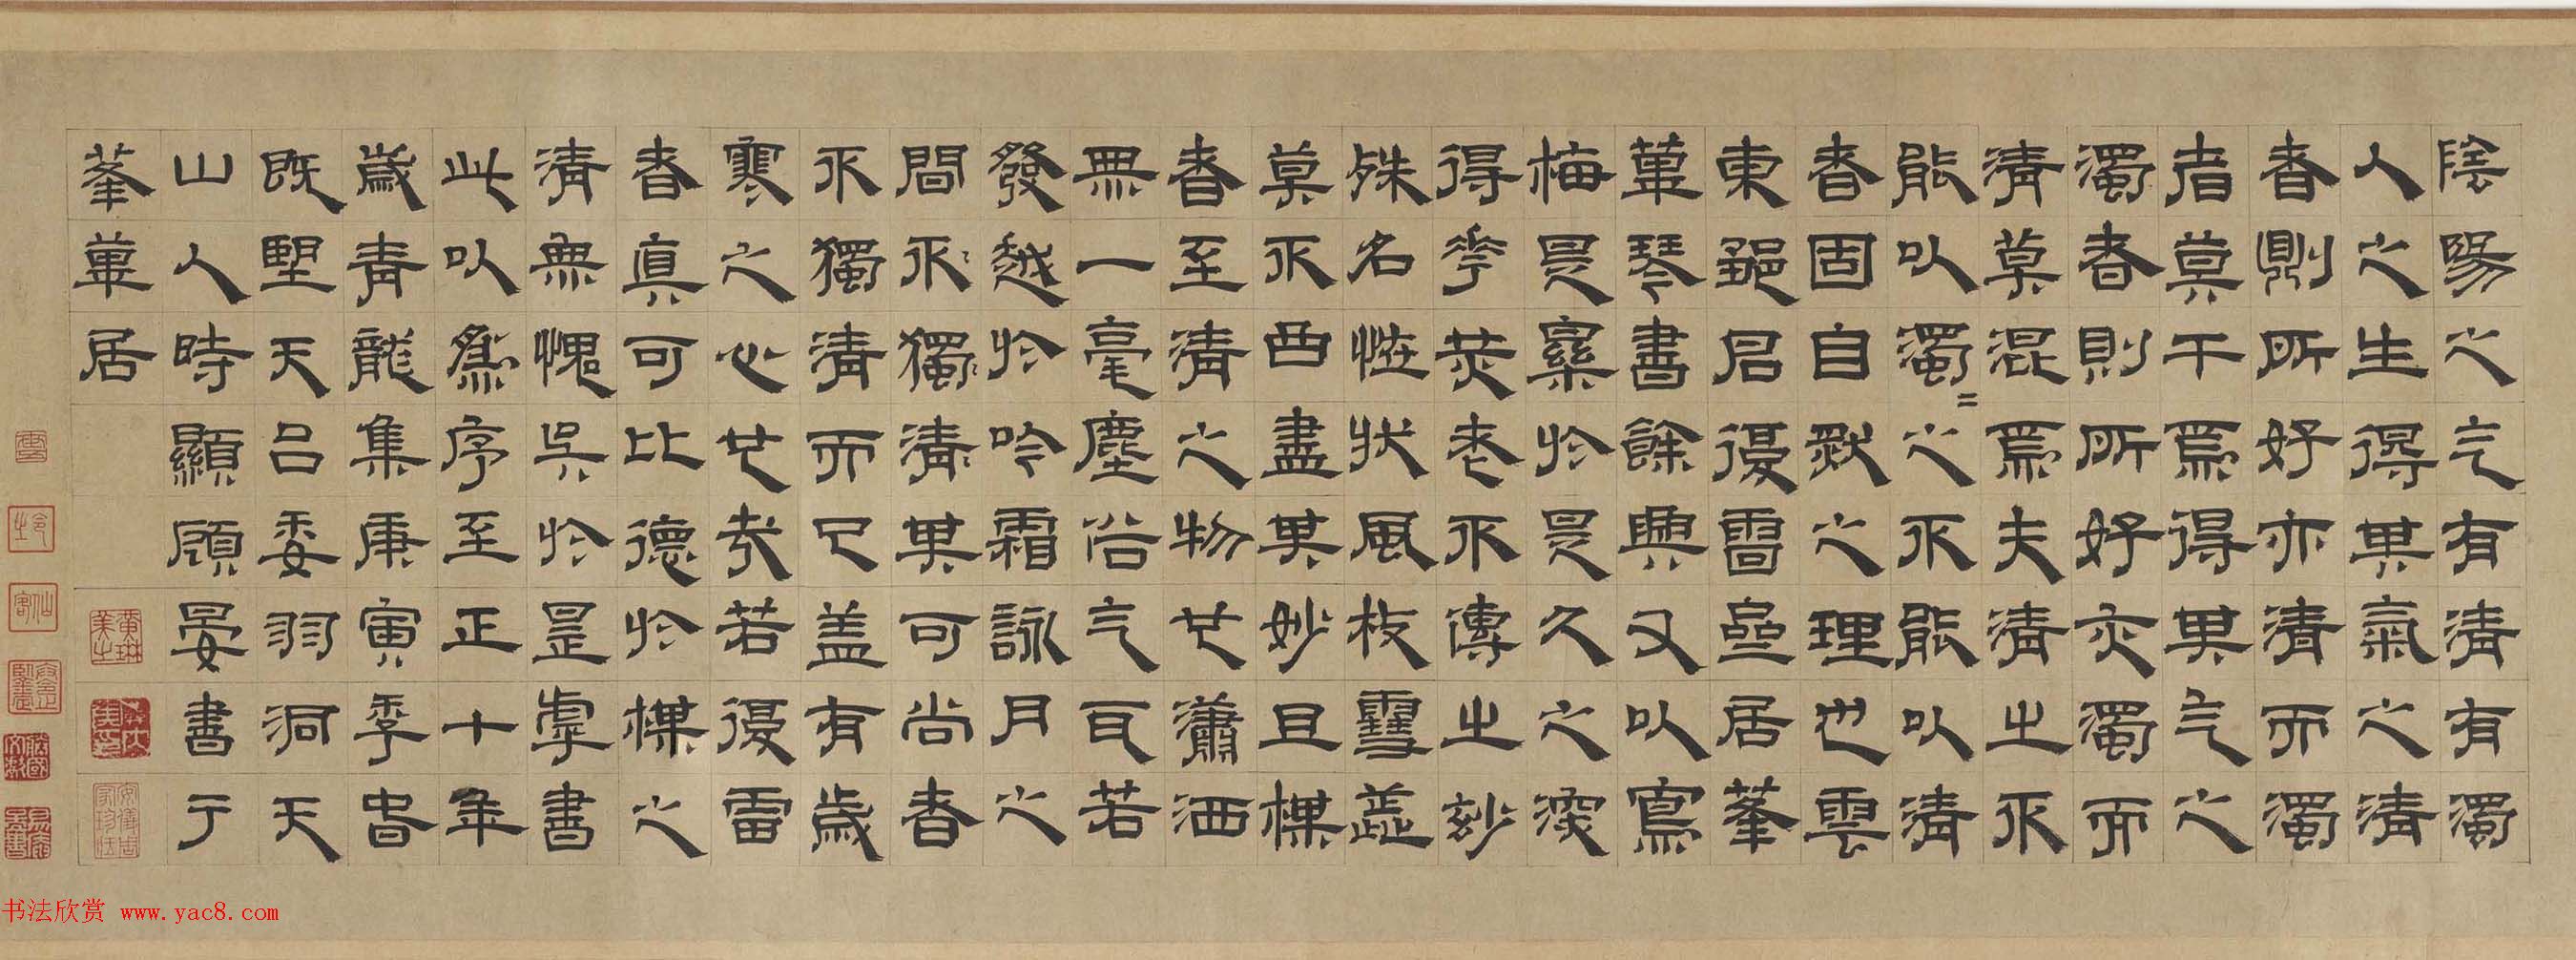 陰陽之气有清有濁
人之生得其氣之清
者則所好亦清而濁
者莫干焉得其气之
濁者則所好亦濁而
清莫混焉夫清㞢不
能以濁=之不能以清
者固自然之理也雲
東君復啚居
琴書餘興又以寫
梅是於是久之深
得華英老不傳㞢玅
殊名性狀風枝雪蕊
莫不盡其妙且模
者至清之物也瀟洒
無一毫塵俗气若
發越於吟霜詠月之
間不獨清其可尚者
不獨清而已蓋有歲
寒之心也哉若復
者真可比德於模之
清無愧吳於是虖書
此以為序至正十年
歲青龍集庚寅季
既望天呂委羽洞天
山人時顯顧晏書于
居
书法欣赏 www.yac8.com